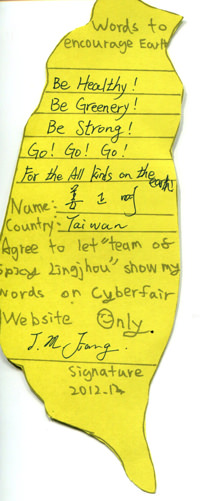 Words to
encourage Earth
Be Healthy!
Be Greenery!
Be Strong!
Go! Go! Go!
For the All kinds on the earth
Name: 姜
Country: Taiwan
Agree to let "team of
spicy Lingjhou" show my
words on Cyberfair
Website Only.
J.M Jiang.
Signature
2012.12